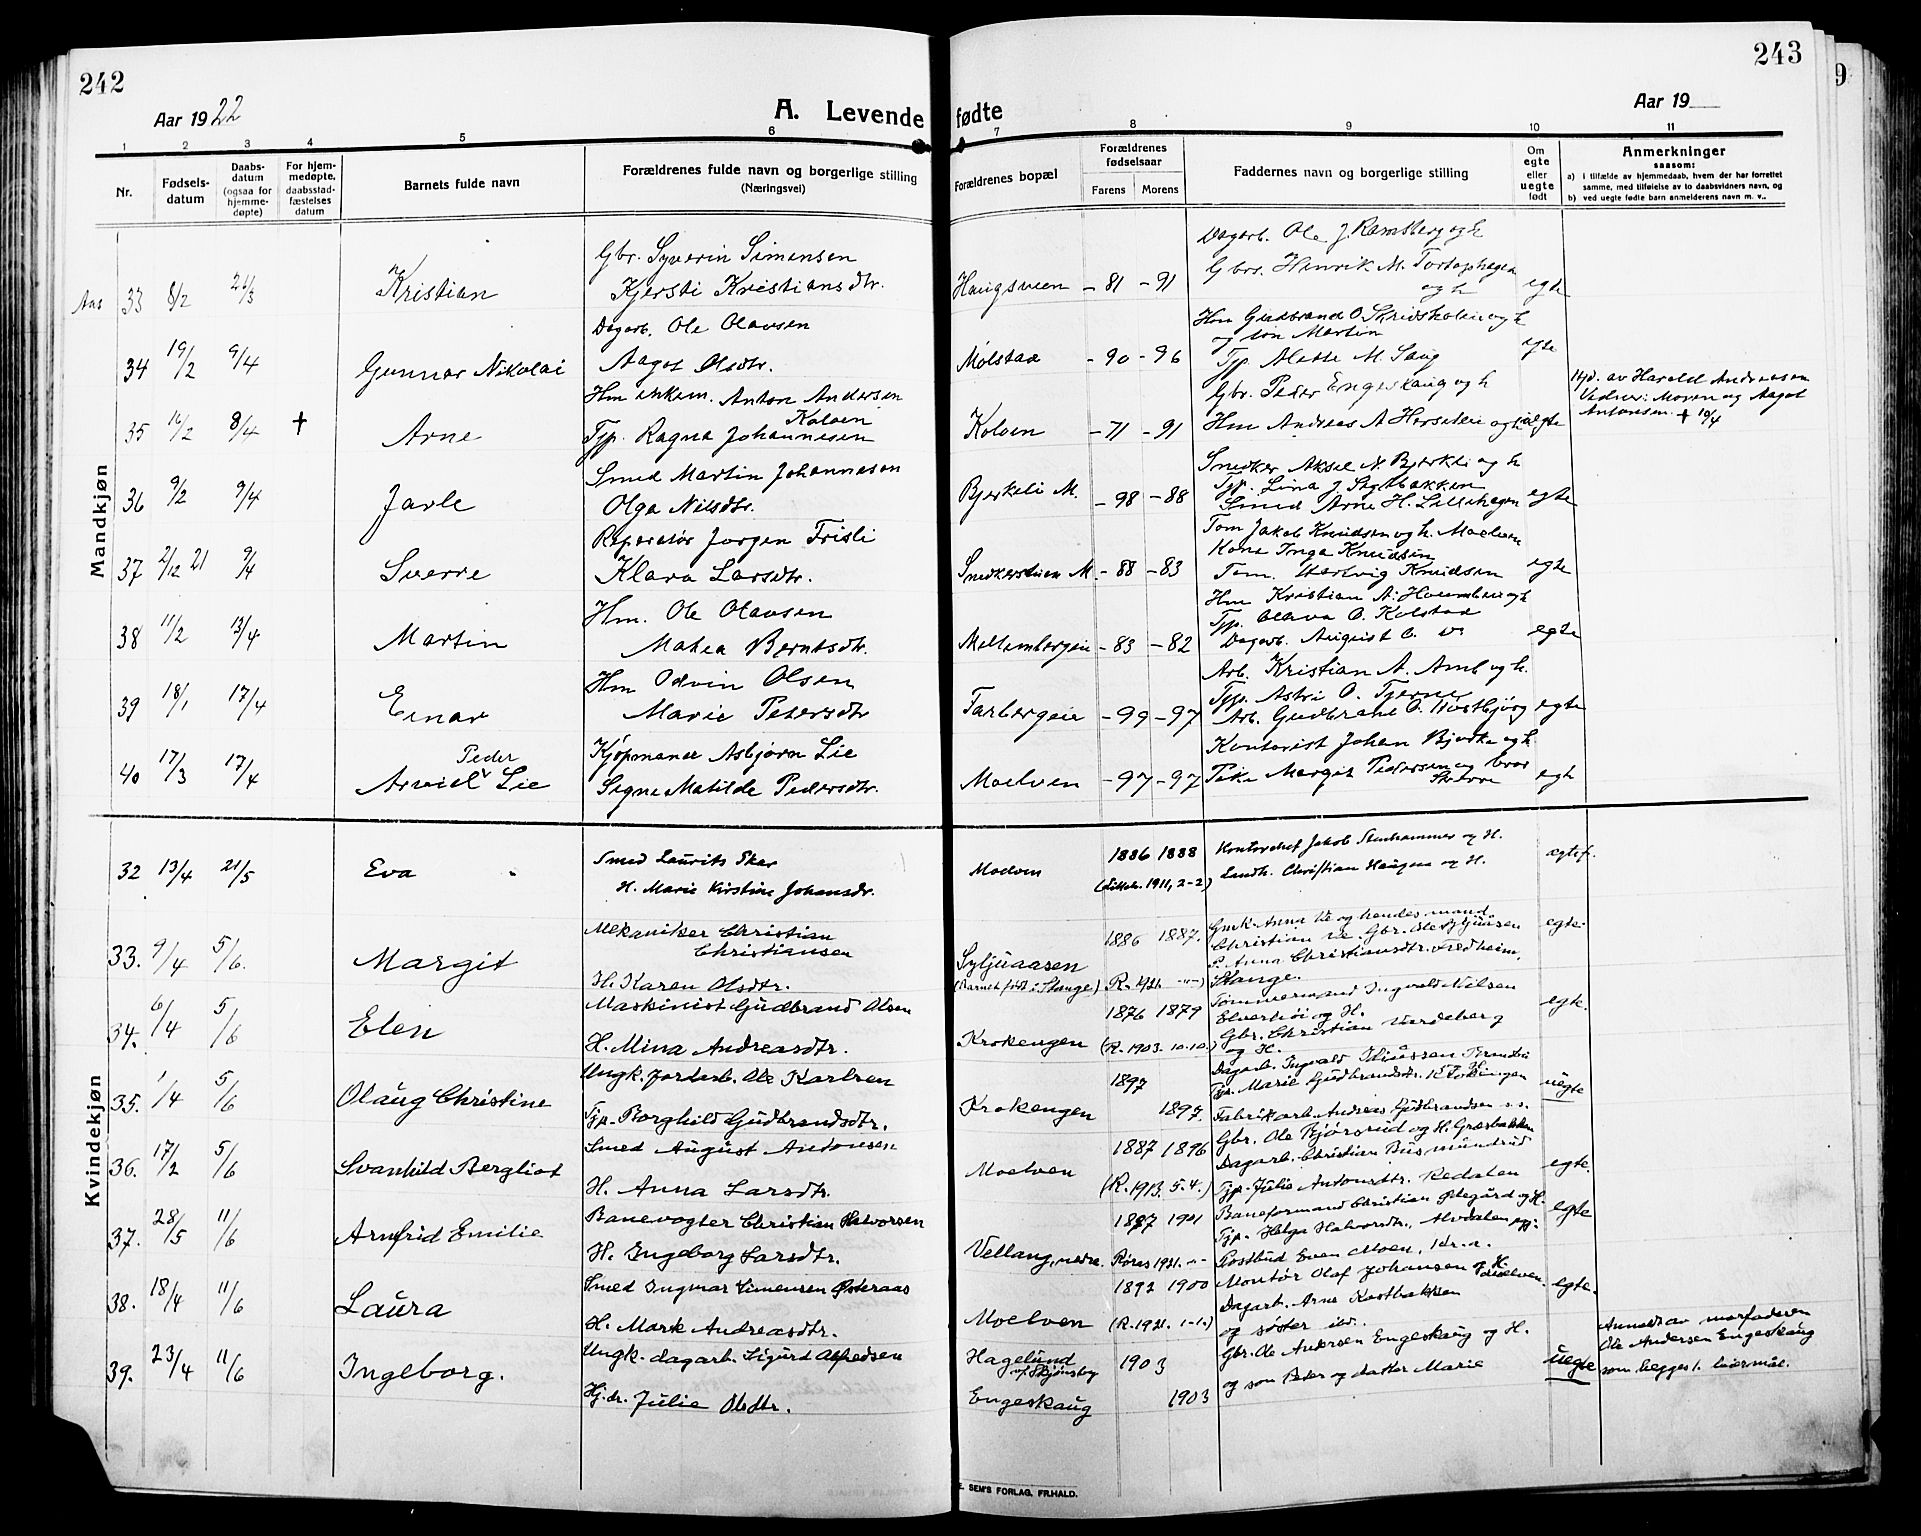 242
Aar 1922
A. Levende
1 2 3 4 5 6
Nr.
Fødsels-
datum
Daabs-
datum
(ogsaa for
hjemme-
døpte)
For hjem-
medøpte,
daabsstad-
fæstelses
datum
Barnets fulde navn
Forældrenes fulde navn og borgerlige stilling
(Næringsvei)
Mandkjøn
Gbr. Syverin Simensen
Aas 33 8/2 Kristian Kjersti Kristiansdtr.
Dagarb. Ole Olavsen
34 19/2 9/4 Gunnar Nikolai Aagot Olsdtr.
Hm enkem. Anton Andersen
Kolven
35 16/2 8/4 + Arne Tjp. Ragna Johannesen
Smed Martin Johannesen
36 9/2 9/4 Jarle Olga Nilsdtr.
Reparatør Jørgen Frisli
37 2/12 21 9/4 Sverre Klara Larsdtr.
Hm. Ole Olavsen
38 11/2 13/4 Martin Matea Berntsdtr.
Hm Odvin Olsen
39 18/1 17/4 Einar Marie Petersdtr
Peder Kjøpmand Asbjørn Lie
40 17/3 17/4 Arvid Lie Signe Matilde Pedersdtr.
Kvindekjøn
32 13/4 21/5 Eva Smed Laurits Skar
H. Marie Kirstine Johansdr.
Mekaniker Christian
Christiansen
33. 9/4 5/6. Margit
H. Karen Olsdtr.
Maskinist Gudbrand Olsen
34. 6/4 5/6 Elen
H. Mina Andreasdtr.
Ungk. Jordarb. Ole Karlsen
35. 1/4 5/6 Olaug Christine
Tjp. Borghild Gudbrandsdtr.
Smed August Antonsen
36. 17/2 5/6 Svanhild Bergliot
H. Anna Larsdtr.
Banevogter Christian Halvorsen
37. 28/5 11/6 Arnfrid Emilie
H. Ingeborg Larsdtr.
Smed Ingmar Simensen Østeraas
38. 18/4 11/6 Laura
H. Mark Andreasdtr.
Ungk. dagarb. Sigurd Alfredsen
39. 23/4 11/6 Ingeborg.
Hj.dr. Julie Olsdtr.
243
9
fødte
Aar 19
7 8 9 10 11
Forældrenes bopæl
Forældrenes
fødselsaar
Farens Morens
Faddernes navn og borgerlige stilling
Om
egte
eller
uegte
født
Anmerkninger
saasom:
a) i tilfælde av hjemmedaab, hvem der har forrettet
samme, med tilføielse av to daabsvidners navn, og
b) ved uegte fødte barn anmelderens navn m. v..
Dagarb. Ole J. Ramsberg og h
Gbrs. Henrik M.
og h
Haugsveen - 81 - 91 egte
Hm Gudbrand O. Skridsholen og h
og søn Martin
Molstad - 90 - 96 Tjp. Alette M. Saug egte
Gbr. Peder Engeskaug og h
Hjd. av Harald Andreasen
Vidner: Moren og Aagot
Antonsen + 10/4
Kolven - 71 - 91 Hm Andreas A og h egte
Snedker Aksel N. Bjerkli og h
Tjp. Lina J Stybakken
Bjerkeli M. - 98 - 88 Smed Arne H. Lillehagen egte
Tom Jakob Knudsen og h. Moelven
Kone Inga Knudsen
Snedkerstuen M. - 88 - 83 Tom. Hartvig Knudsen egte
Hm Kristian og h
Tjp. Olava O. Kolstad
Mellembergeie - 83 - 82 Dagarb. August O. Do egte
Arb. Kristian A. Amb og h.
Tjp. Astri O. Tjerne
Farbergeie - 99 - 97 Arb. Gudbrand O. egte
Kontorist Johan Bjørke og h
Moelven - 97 - 97 Pike Margit Pedersen og bror
Sverre egte
Moelven 1886 1888 Kontorchef Jakob Stenhammer og H. egtef.
(Lilleh. 1911, 2-2) Landh. Christian Haugen og H.
1886 1887. Gmk. Anna Lie og hendes mand
Christian Lie. Gbr. Ole Syljuasen egte.
Syljuaasen P. Anna Christiansdtr. Fredheim,
(Barnet født i Stange) (R. 1921. -"-) Stange.
1876 1879 Tømmermand Ingvald Nilsen
Elverhøi og H. egte.
Gbr. Christian Vardeberg
Krokengen (R. 1903. 10.10.) og H.
Dagarb. Ingvald
1897 Tjp. Marie Gudbrandsdtr. Krokengen uegte
Krokengen 1897. Fabrikarb. Andreas Gudbrandsen s.s.
1887 1896 Gbr. Ole Bjørgrud og H. Græsbakken
Dagarb. Christian Busmundrud
Moelven egte.
(R. 1913. 5.4.) Tjp. Julie Antonsdtr. Redalen
1897 1901 Baneformand Christian Ødegård og H. egte
Tjp. Helga Halvorsdtr. Alvdalen og
Vellang, nedre. Røros 1921. -"- Postbud Even Moen, Kr.a.
1892 1900 Montør Olaf Johansen og H.
Moelven. egte.
Dagarb. Arne Kostbakken
Moelven (R. 1921. 1-1.) og søster
Hagelund Gbr. Ole Andersen Engeskaug og H.
v/ Skjønsby 1903 og søn Peter og datter Marie uegte
Engeskaug 1903
Anmeldt av morfaderen
Ole Andersen Engeskaug
som begges 1. leiermål.
E. SEM'S FORLAG, FR.HALD.